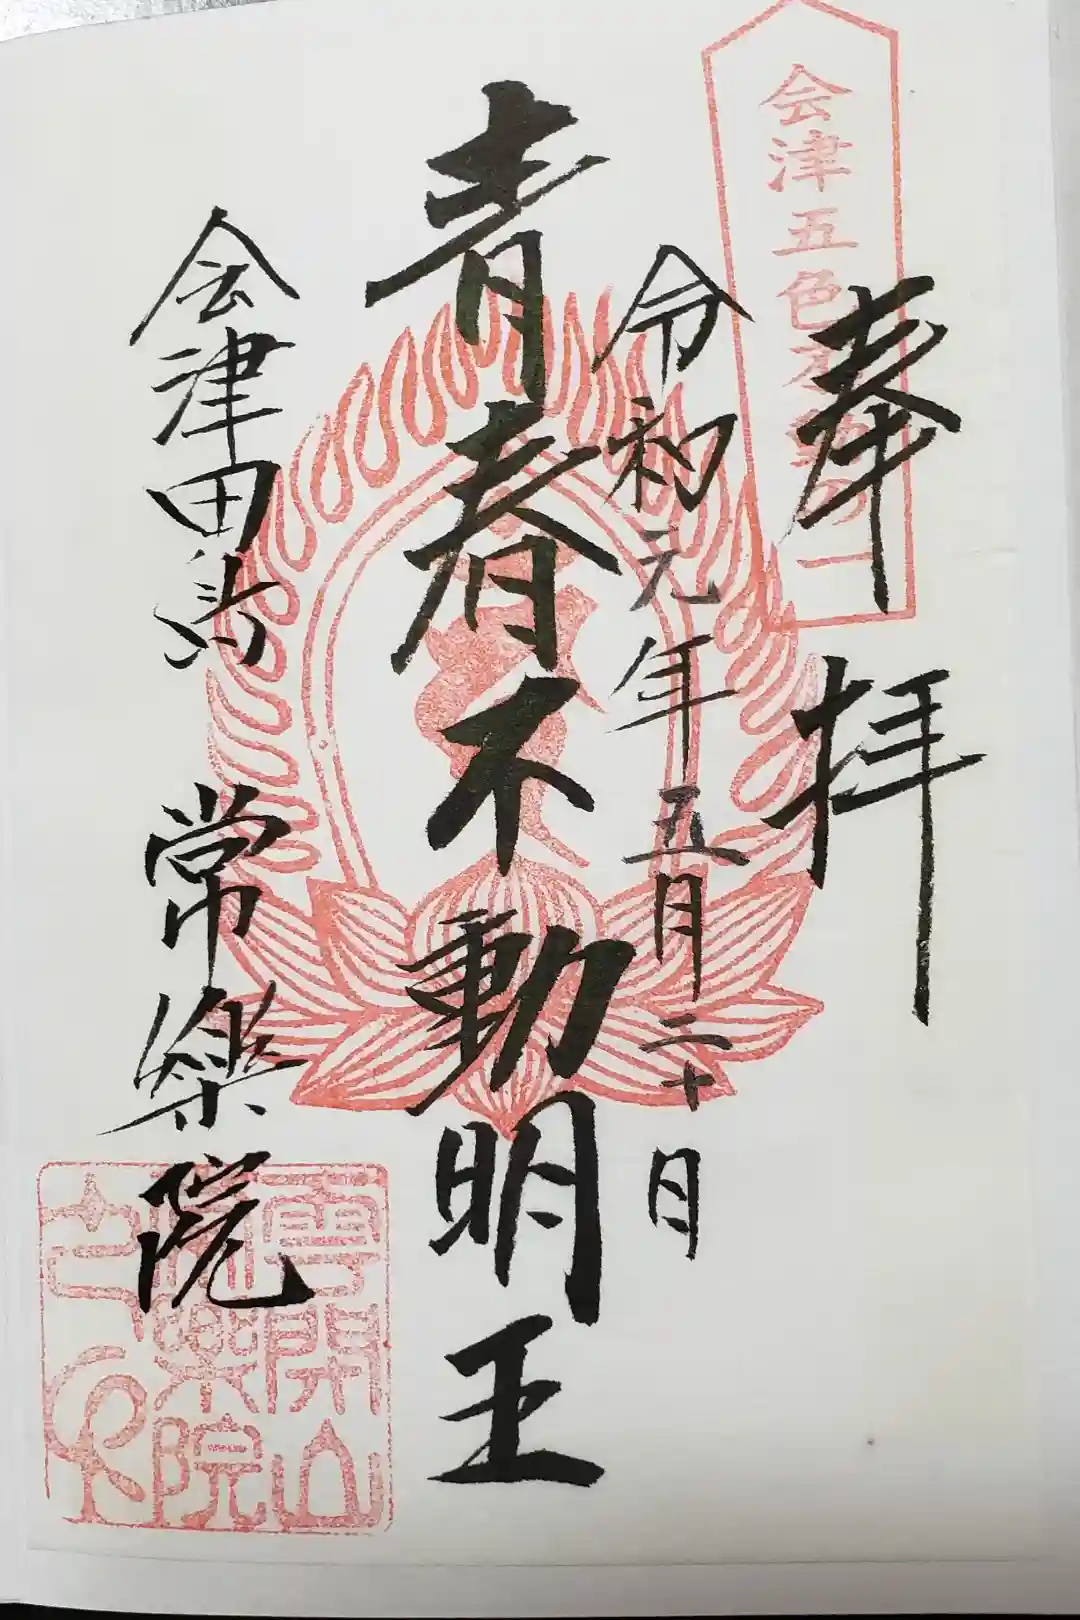 会津五色不動の一
奉拝
令和元年五月二十日
青春不動明王
会津田島 常樂院
雲開山
常樂院
之印